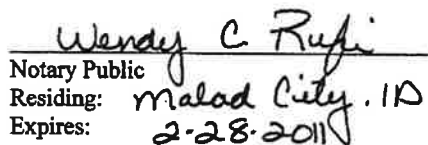 Wendy C.
Notary Public
Residing: Malad City, ID
Expires: 2-28-2011